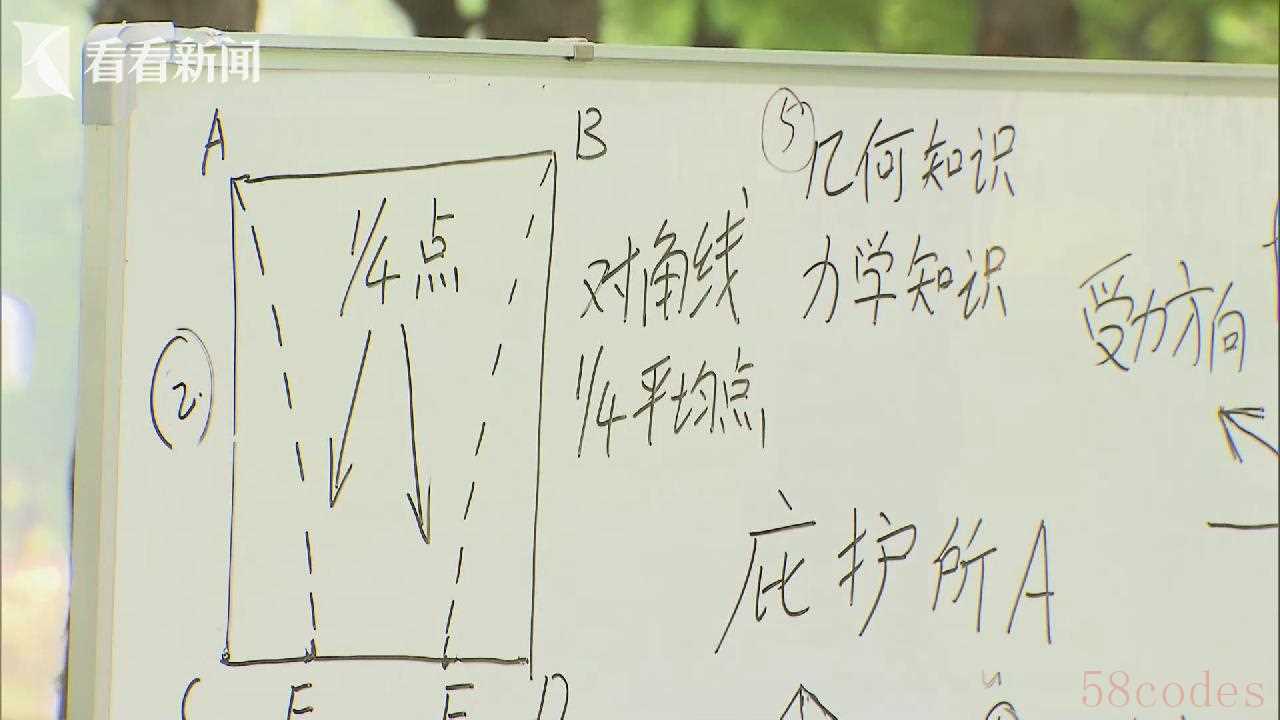 看看新闻
A
B
⑤
几何知识
1/4点
对角线
力学知识
受力方向
②
1/4平均点
庇护所A
C E F D
58codes